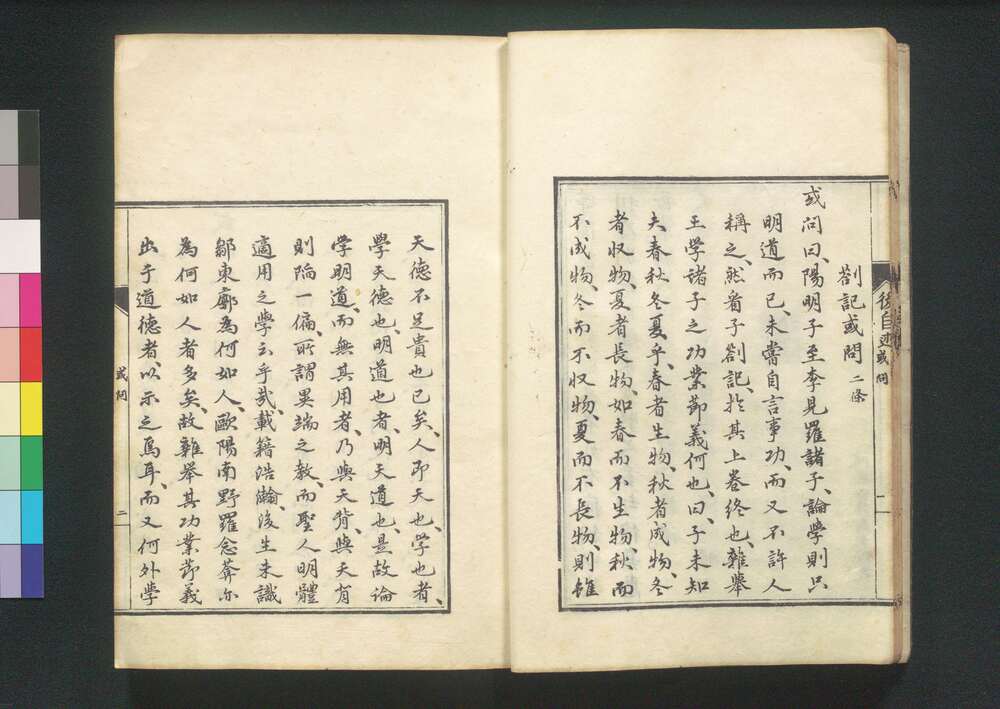 劄記或問 二條
或問曰、陽明子至李見羅諸子、論學則只
明道而已、未嘗自言事功、而又不許人
稱之、然看子劄記、於其上卷終也、雜舉
王學諸子之功業節義何也、曰、子未知
夫春秋冬夏乎、春者生物、秋者成物、冬
者収物、夏者長物、如春而不生物、秋而
不成物、冬而不収物、夏而不長物、則雖
後自述 或問
一
天德不足貴也已矣、人即天也、學也者、
學天德也、明道也者、明天道也、是故論
學明道、而無其用者、乃與天背、與天背
則陷一偏、所謂異端之教、而聖人明體
適用之學云乎哉、載籍浩瀚、後生未識
鄒東廓為何如人、歐陽南野羅念菴亦
為何如人者多矣、故雜舉其功業節義
出于道德者、以示之焉耳、而又何外學
或問
二